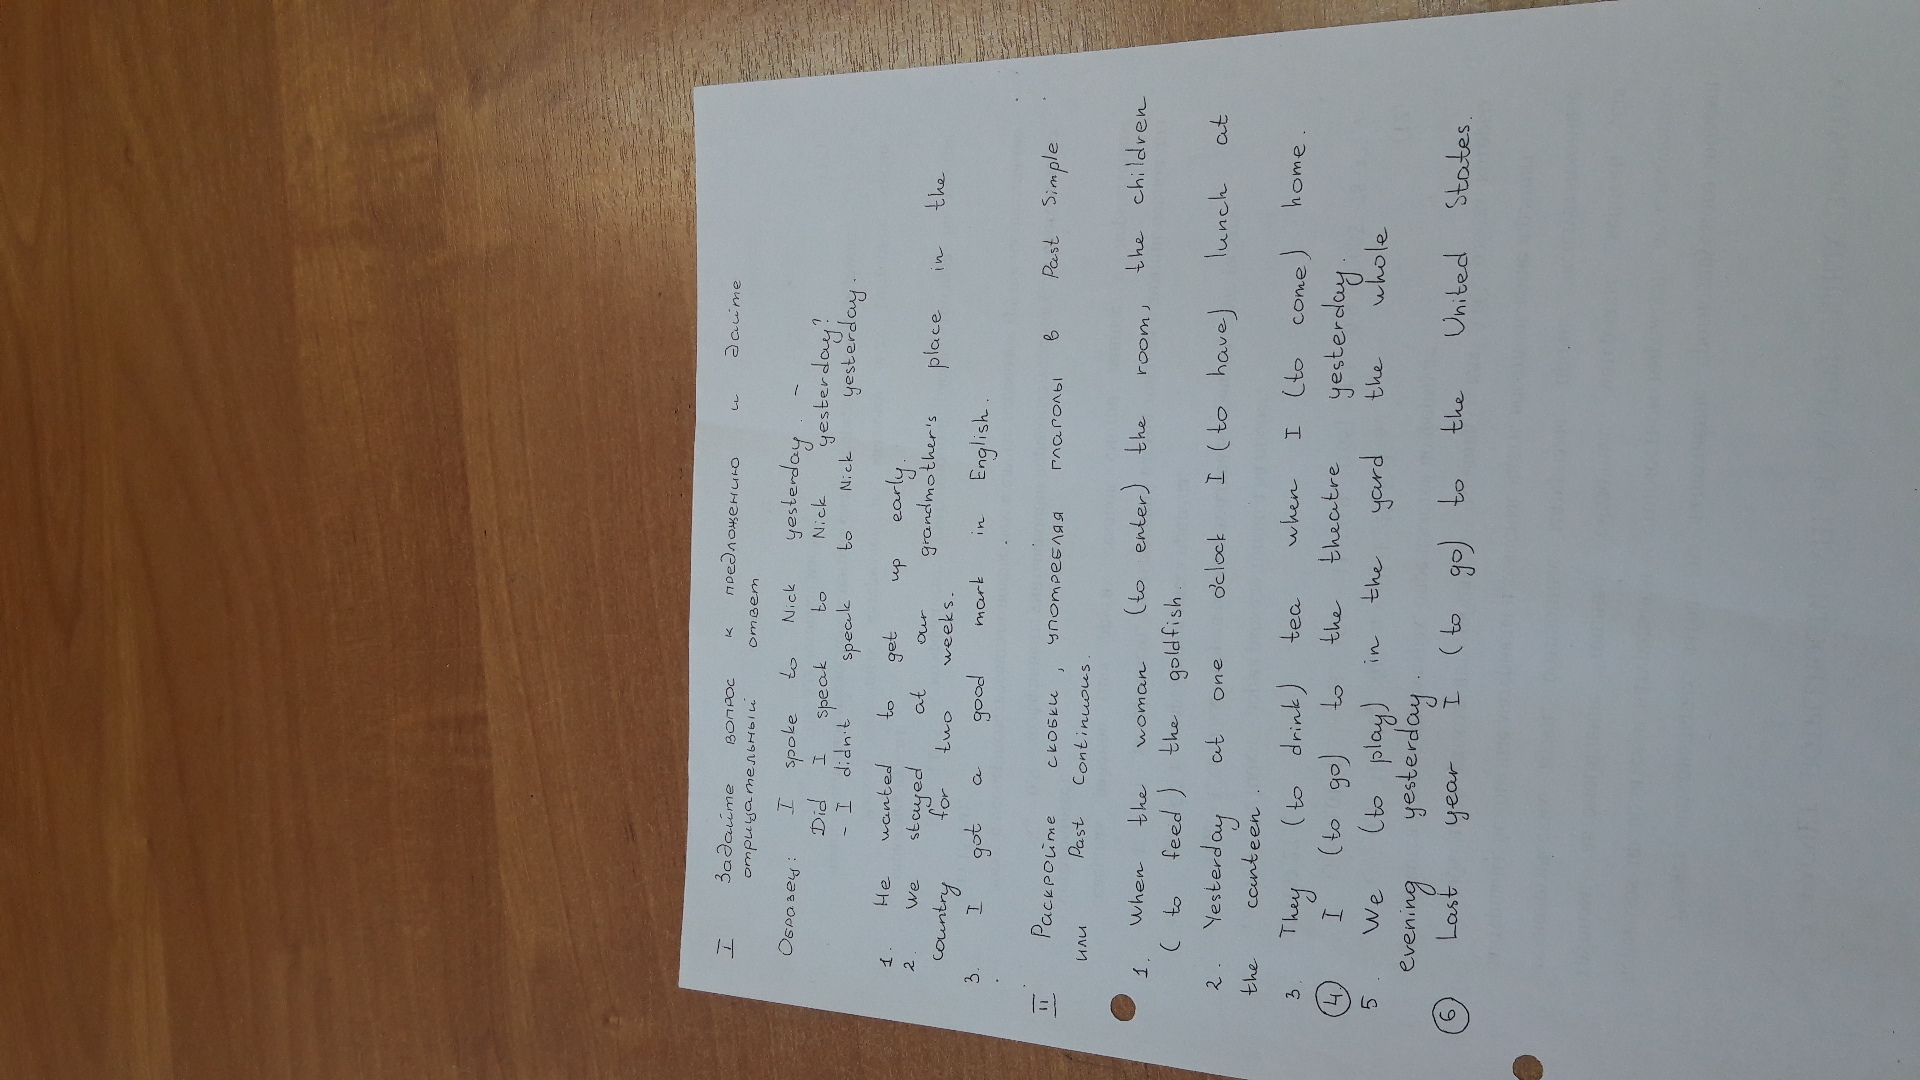 I Задайте вопрос к предложению и дайте
отрицательный ответ
Образец: I spoke to Nick yesterday. –
Did I speak to Nick yesterday?
- I didn't speak to Nick yesterday.
1. He wanted to get up early.
2. We stayed at our grandmother's place in the
country for two weeks.
3. I got a good mark in English.
II Раскройте скобки, употребляя глаголы в Past Simple
или Past Continuous.
1. When the woman (to enter) the room, the children
(to feed) the goldfish.
2. Yesterday at one o'clock I (to have) lunch at
the canteen.
3. They (to drink) tea when I (to come) home.
4. I (to go) to the theatre yesterday.
5. We (to play) in the yard the whole
evening yesterday.
6 Last year I (to go) to the United States.